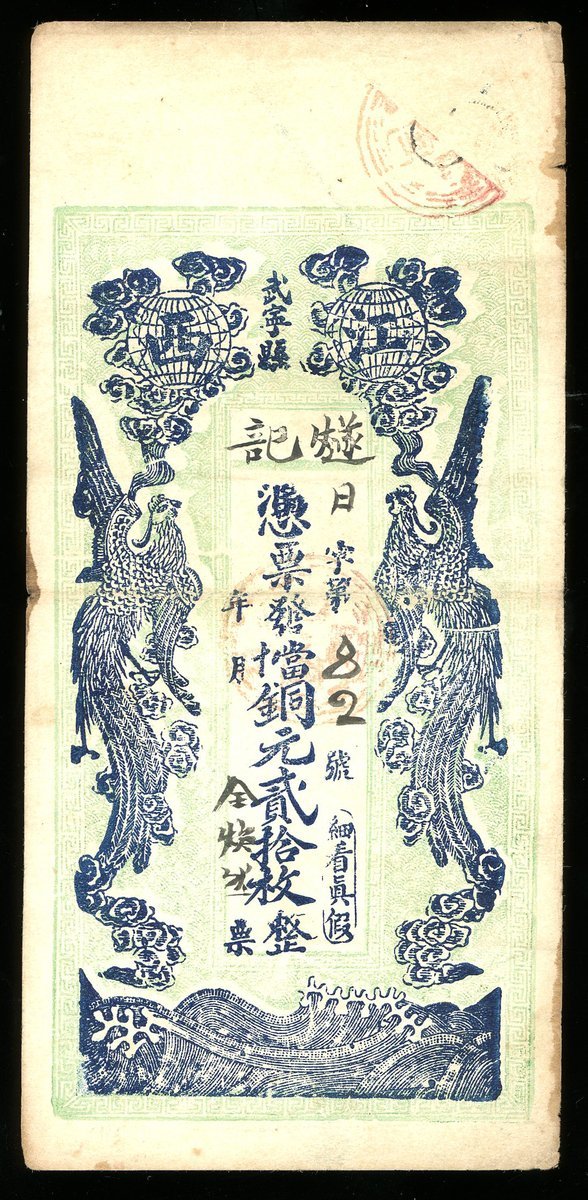 江西
武寧縣
燧記
日字第82號
細看真假
憑票發當十銅元貳拾枚整
年 月
全煥生 票